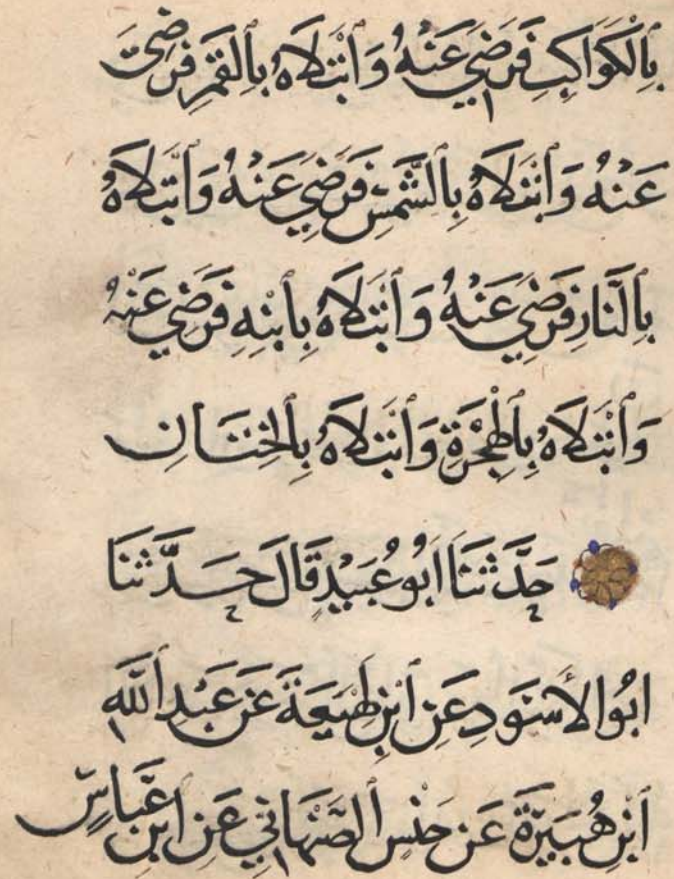 بِالْكَوَاكِبِ فَرَضِيَ عَنْهُ وَابْتَلَاهُ بِالْقَمَرِ فَرَضِيَ
عَنْهُ وَابْتَلَاهُ بِالشَّمْسِ فَرَضِيَ عَنْهُ وَابْتَلَاهُ
بِالنَّارِ فَرَضِيَ عَنْهُ وَابْتَلَاهُ بِابْنِهِ فَرَضِيَ عَنْهُ
وَابْتَلَاهُ بِالْهِجْرَةِ وَابْتَلَاهُ بِالْخِتَانِ
حَدَّثَنَا أَبُو عُبَيْدٍ قَالَ حَدَّثَنَا
ابُو الأَسْوَدِ عَنِ ابْنِ لَهِيعَةَ عَنْ عَبْدِ اللَّهِ
ابْنِ هُبَيْرَةَ عَن حَنَشِ الصَّنْهَانِيِ عَنِ ابْنِ عَبَّاسٍ